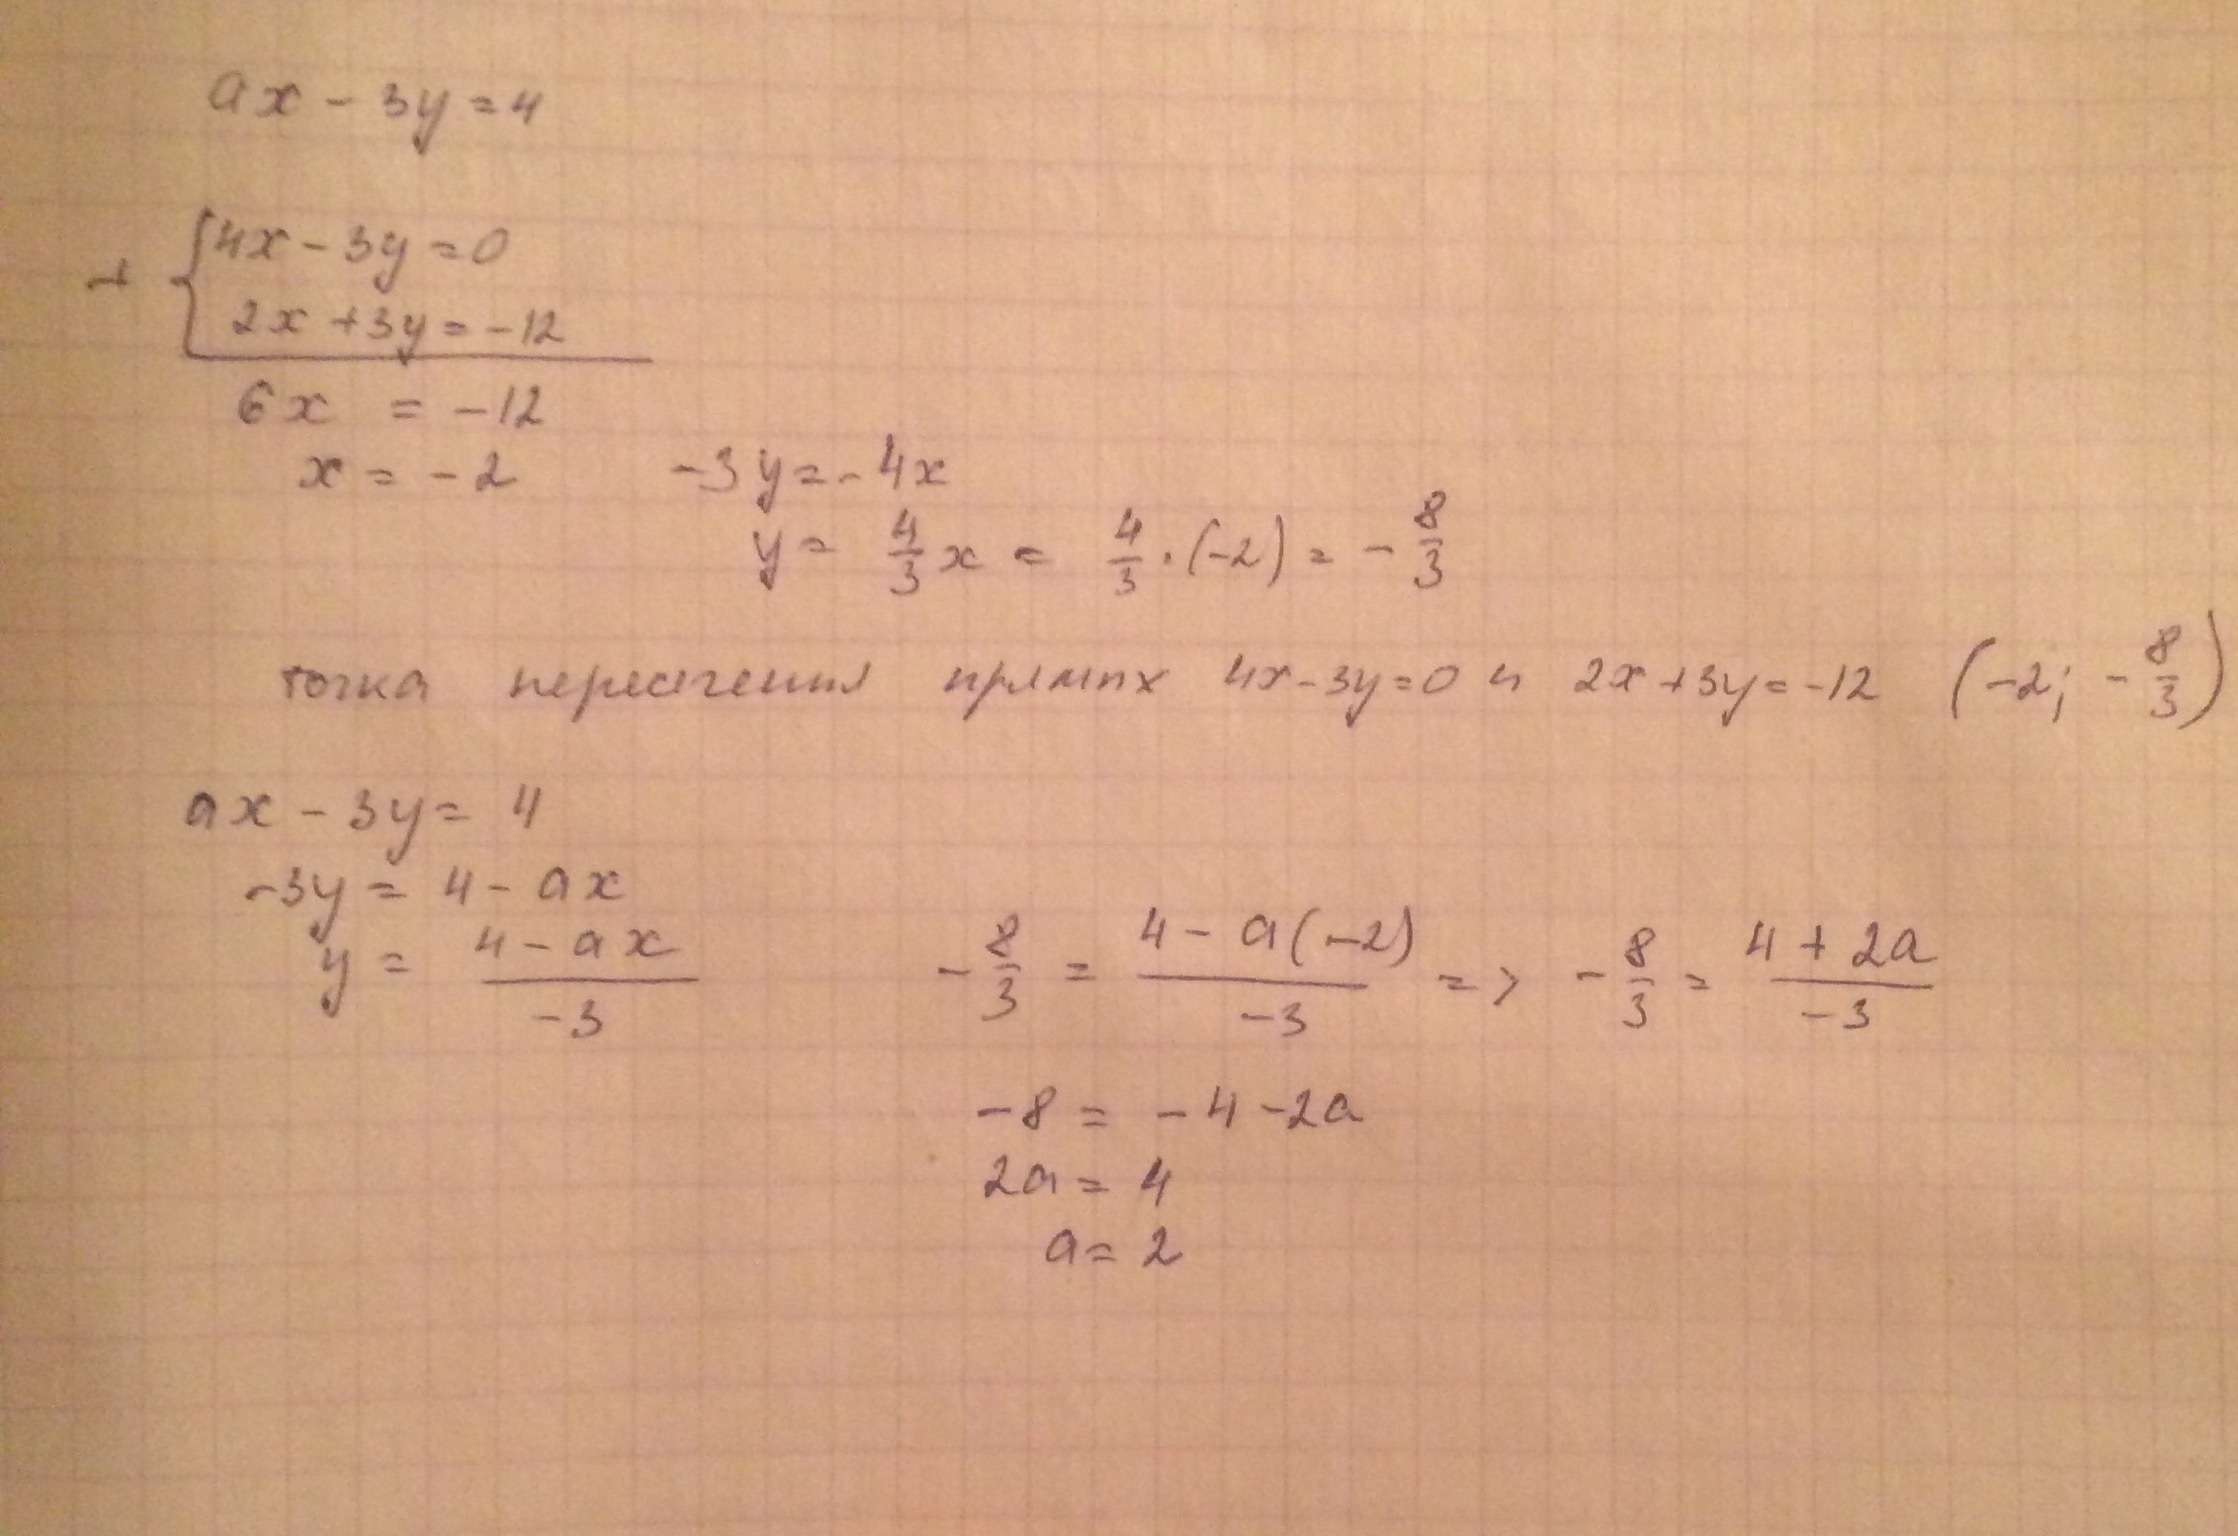 ax - 3y = 4
4x - 3y = 0
+
2x + 3y = -12
6x = -12
x = -2
-3y = -4x
y = 4/3 x = 4/3 · (-2) = - 8/3
точка пересечения прямых 4x - 3y = 0 и 2x + 3y = -12 (-2; - 8/3)
ax - 3y = 4
-3y = 4 - ax
y = (4 - ax)/-3
- 8/3 = (4 - a(-2))/-3 => - 8/3 = (4 + 2a)/-3
-8 = -4 - 2a
2a = 4
a = 2